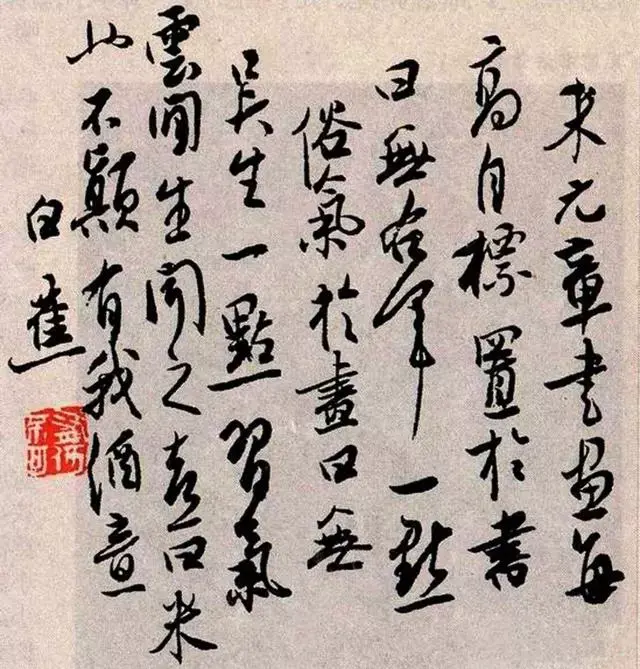 米元章書画每
高自標置於書
曰無右軍一點
俗氣於畫曰無
吳生一點習氣
雲間生聞之喜曰米
也不顛有我酒意
白蕉